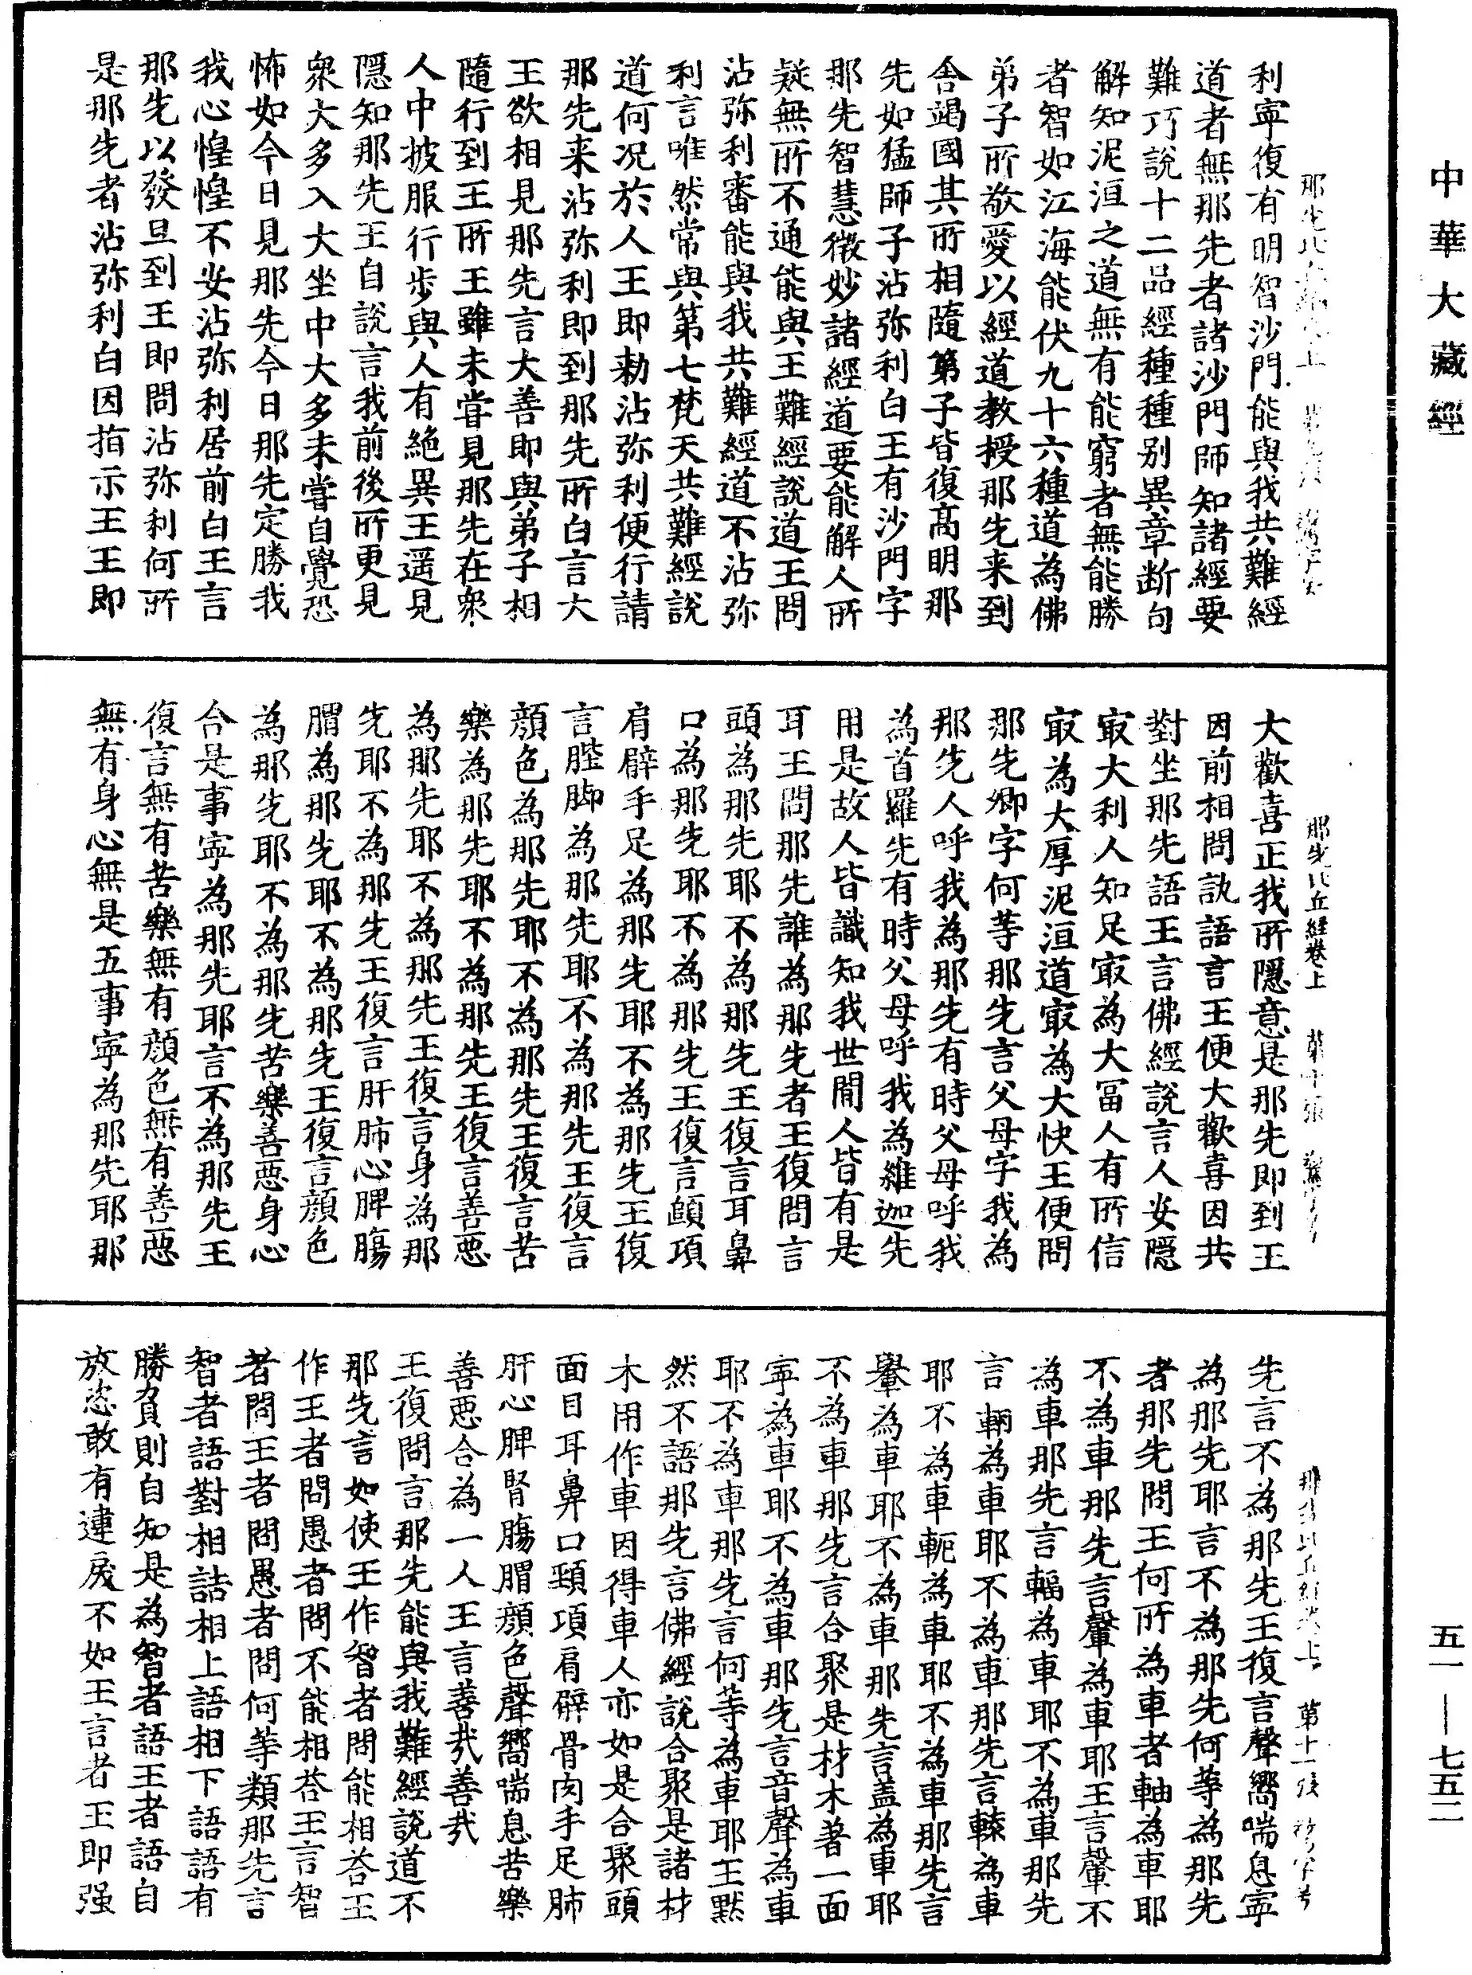 中華大藏經
利寧復有明智沙門能與我共難經
道者無那先者諸沙門師知諸經要
難巧說十二品經種種別異章断句
解知泥洹之道無有能窮者無能勝
者智如江海能伏九十六種道為佛
弟子所敬愛以經道教授那先来到
舍竭國其所相隨弟子皆復髙明那
先如猛師子沾弥利白王有沙門字
那先智慧微妙諸經道要能解人所
疑無所不通能與王難經說道王問
沾弥利審能與我共難經道不沾弥
利言唯然常與第七梵天共難經說
道何况於人王即勑沾弥利便行請
那先来沾弥利即到那先所白言大
王欲相見那先言大善即與弟子相
隨行到王所王雖未嘗見那先在衆
人中披服行步與人有絶異王遥見
隱知那先王自說言我前後所更見
衆大多入大坐中大多未嘗自覺恐
怖如今日見那先今日那先定勝我
我心惶惶不安沾弥利居前白王言
那先以發旦到王即問沾弥利何所
是那先者沾弥利白因指示王王即
那先比丘經卷上
大歡喜正我所隱意是那先即到王
因前相問訊語言王便大歡喜因共
對坐那先語王言佛經說言人安隱
㝡大利人知足㝡為大富人有所信
㝡為大厚泥洹道㝡為大快王便問
那先卿字何等那先言父母字我為
那先人呼我為那先有時父母呼我
為首羅先有時父母呼我為維迦先
用是故人皆識知我世間人皆有是
耳王問那先誰為那先者王復問言
頭為那先耶不為那先王復言耳鼻
口為那先耶不為那先王復言頤項
肩臂手足為那先耶不為那先王復
言䏶脚為那先耶不為那先王復言
顔色為那先耶不為那先王復言苦
樂為那先耶不為那先王復言善惡
為那先耶不為那先王復言身為那
先耶不為那先王復言肝肺心脾腸
胃為那先耶不為那先王復言顔色
為那先耶不為那先苦樂善惡身心
合是事寧為那先耶言不為那先王
復言無有苦樂無有顔色無有善惡
無有身心無是五事寧為那先耶那
先言不為那先王復言聲嚮喘息寧
為那先耶言不為那先何等為那先
者那先問王何所為車者軸為車耶
不為車那先言䡰為車耶王言䡰不
為車那先言輻為車耶不為車那先
言輞為車耶不為車那先言轅為車
耶不為車軛為車耶不為車那先言
轝為車耶不為車那先言盖為車耶
不為車那先言合聚是材木著一面
寧為車耶不為車那先言音聲為車
耶不為車那先言何等為車耶王默
然不語那先言佛經說合聚是諸材
木用作車因得車人亦如是合聚頭
面目耳鼻口頸項肩臂骨肉手足肺
肝心脾腎腸胃顔色聲嚮喘息苦樂
善惡合為一人王言善㢤善㢤
王復問言那先能與我難經說道不
那先言如使王作智者問能相荅王
作王者問愚者問不能相荅王言智
者問王者問愚者問何等類那先言
智者語對相詰相上語相下語語有
勝負則自知是為智者語王者語自
放恣敢有違戾不如王言者王即强
五一—七五二